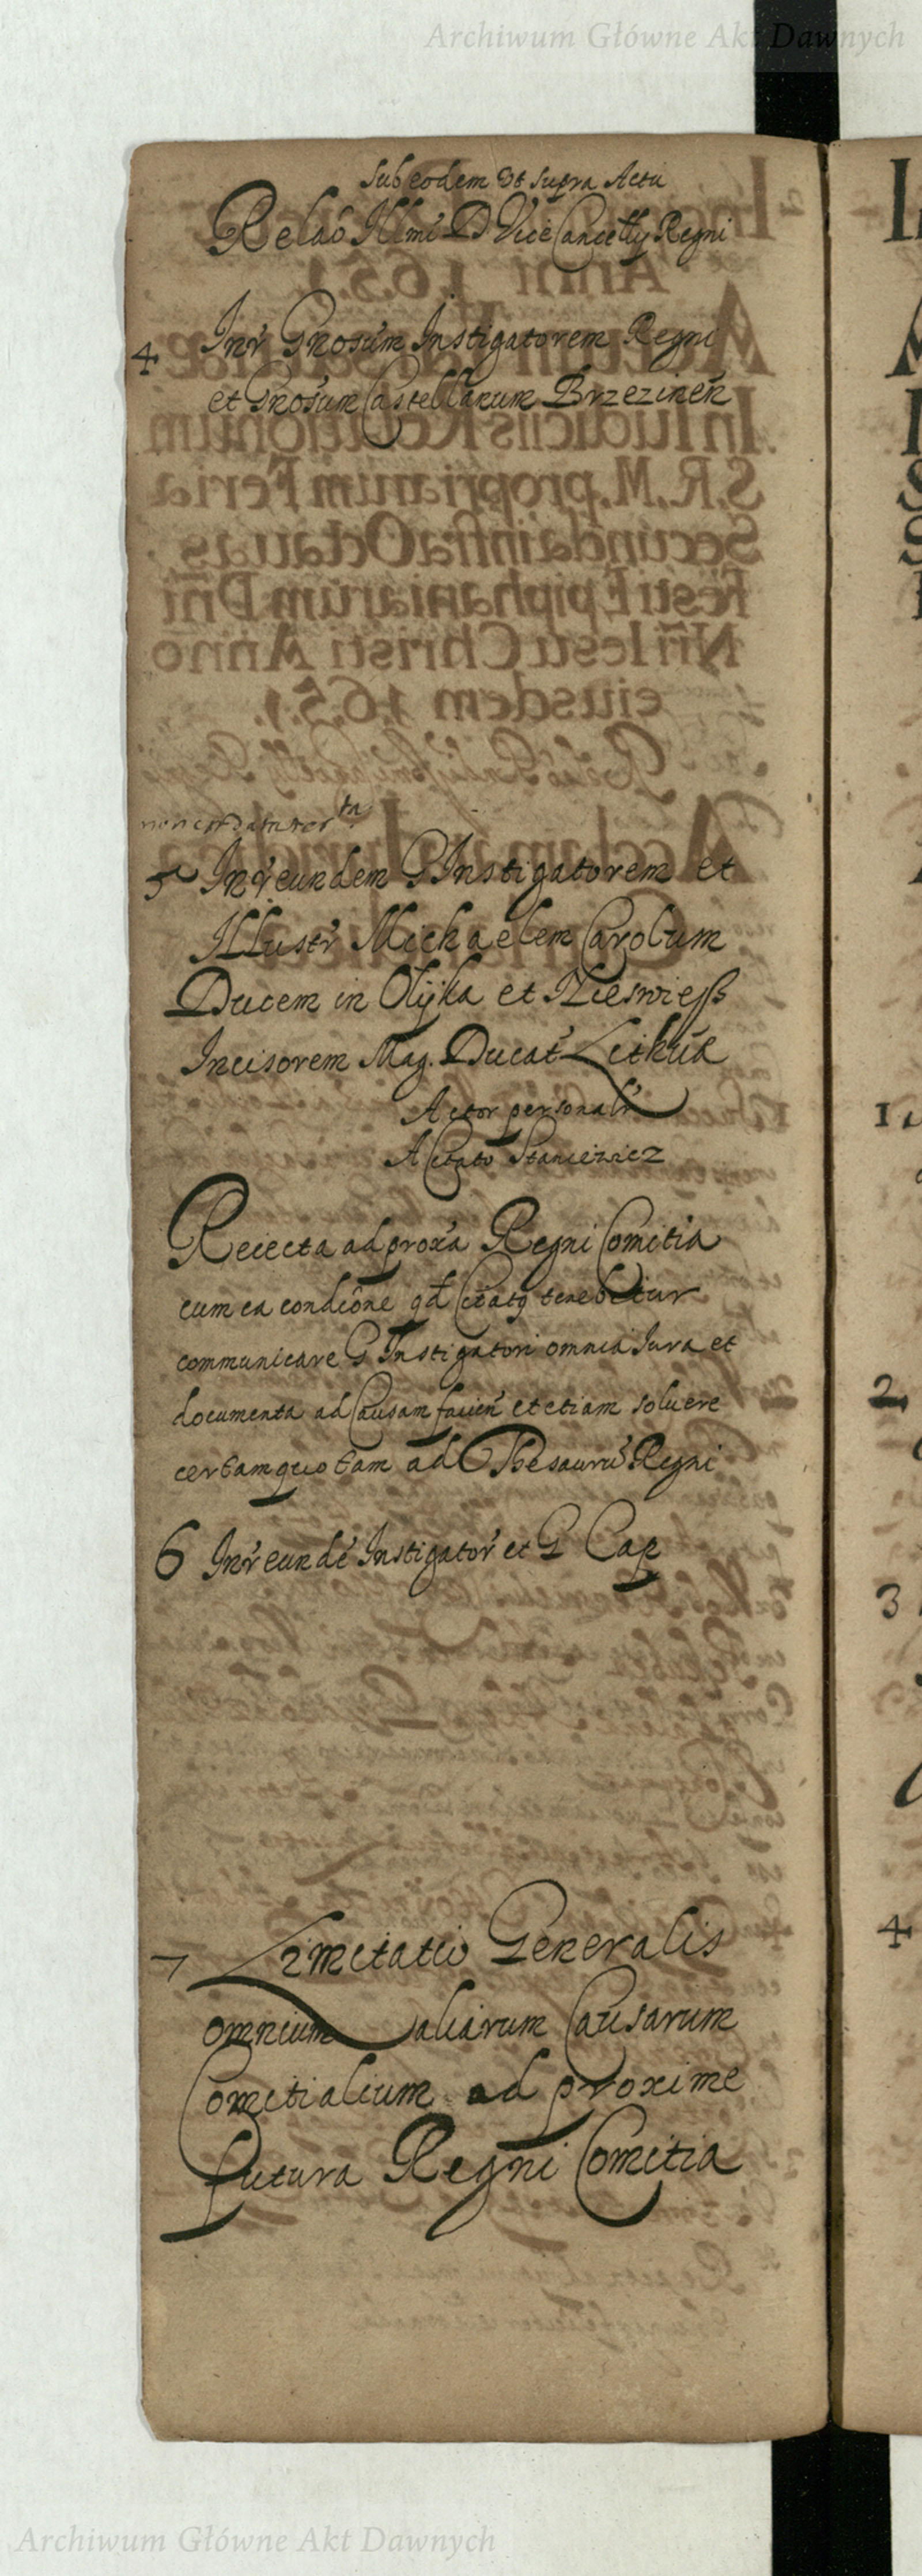 Archiwum Główne Akt Dawnych
Sub eodem Vt supra Actu
Relaõ Illmi D Vice Cancelly Regni
4 Inr̃ Gnosum Instigatorem Regni
et Gnosum Castellanum Brzezineñ
5 Inr̃ eundem G Instigatorem et
Illustr̃ Michaelem Carolum
Ducem in Olÿka et Nieswieß
Incisorem Mag. Ducat Lithuã
Actor personalr̃
A Citato Stanciewicz
Reiecta ad proxa Regni Comitia
cum ea condiõne qd Citatq tenebitur
communicare G Instigatori omnia Iura et
documenta ad Causam facień et etiam soluere
certam quotam ad Thesaurũ Regni
6 Inr̃ eundẽ Instigator̃ et G Cap
7 Limitatio Generalis
omnium aliarum Causarum
Comitialium ad proxime
futura Regni Comitia
1
2
3
4
Archiwum Główne Akt Dawnych